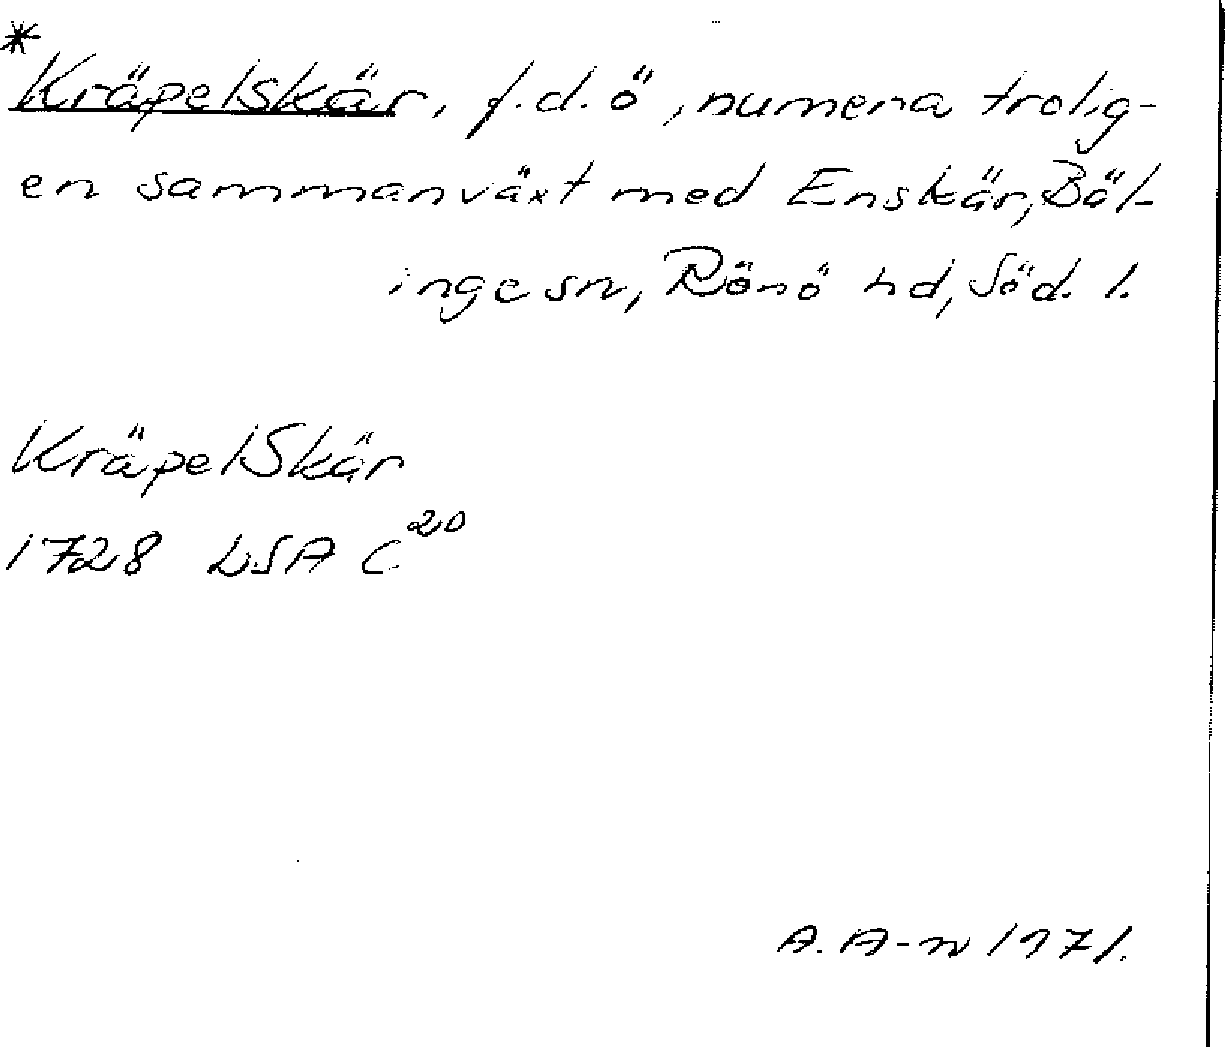 *
Kräpelskär, f.d. ö, numera trolig-
en sammanväxt med Enskär, Bäl-
inge sn, Rönö hd, Söd. l.
KräpelSkär
1728 LSA C²⁰
A. A-n 1971.